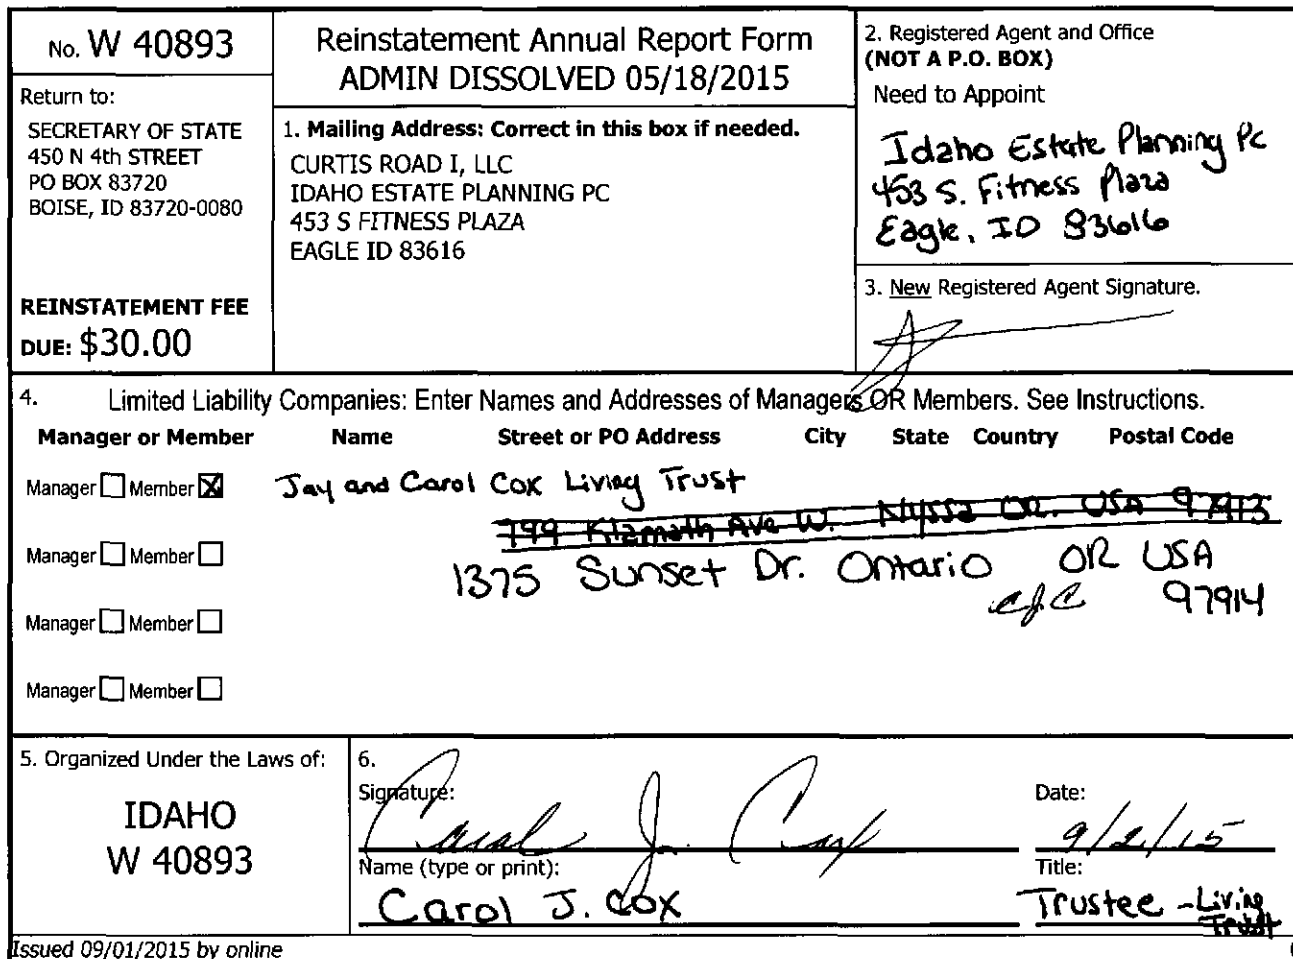 No. W 40893
Return to:
SECRETARY OF STATE
450 N 4th STREET
PO BOX 83720
BOISE, ID 83720-0080
REINSTATEMENT FEE
DUE: $30.00
Reinstatement Annual Report Form
ADMIN DISSOLVED 05/18/2015
1. Mailing Address: Correct in this box if needed.
CURTIS ROAD I, LLC
IDAHO ESTATE PLANNING PC
453 S FITNESS PLAZA
EAGLE ID 83616
2. Registered Agent and Office
(NOT A P.O. BOX)
Need to Appoint
Idaho Estate Planning Pc
453 S. Fitness Plaza
Eagle, ID 83616
3. New Registered Agent Signature.
4. Limited Liability Companies: Enter Names and Addresses of Managers OR Members. See Instructions.
Manager or Member Name Street or PO Address City State Country Postal Code
Manager Member X Jay and Carol Cox Living Trust
799 Klamath Ave W. Nyssa OR. USA 97913
Manager Member
1375 Sunset Dr. Ontario OR USA
CJC 97914
Manager Member
Manager Member
5. Organized Under the Laws of:
IDAHO
W 40893
6.
Signature: Carol J. Cox
Date:
9/2/15
Name (type or print):
Carol J. Cox
Title:
Trustee - Living
Trust
Issued 09/01/2015 by online